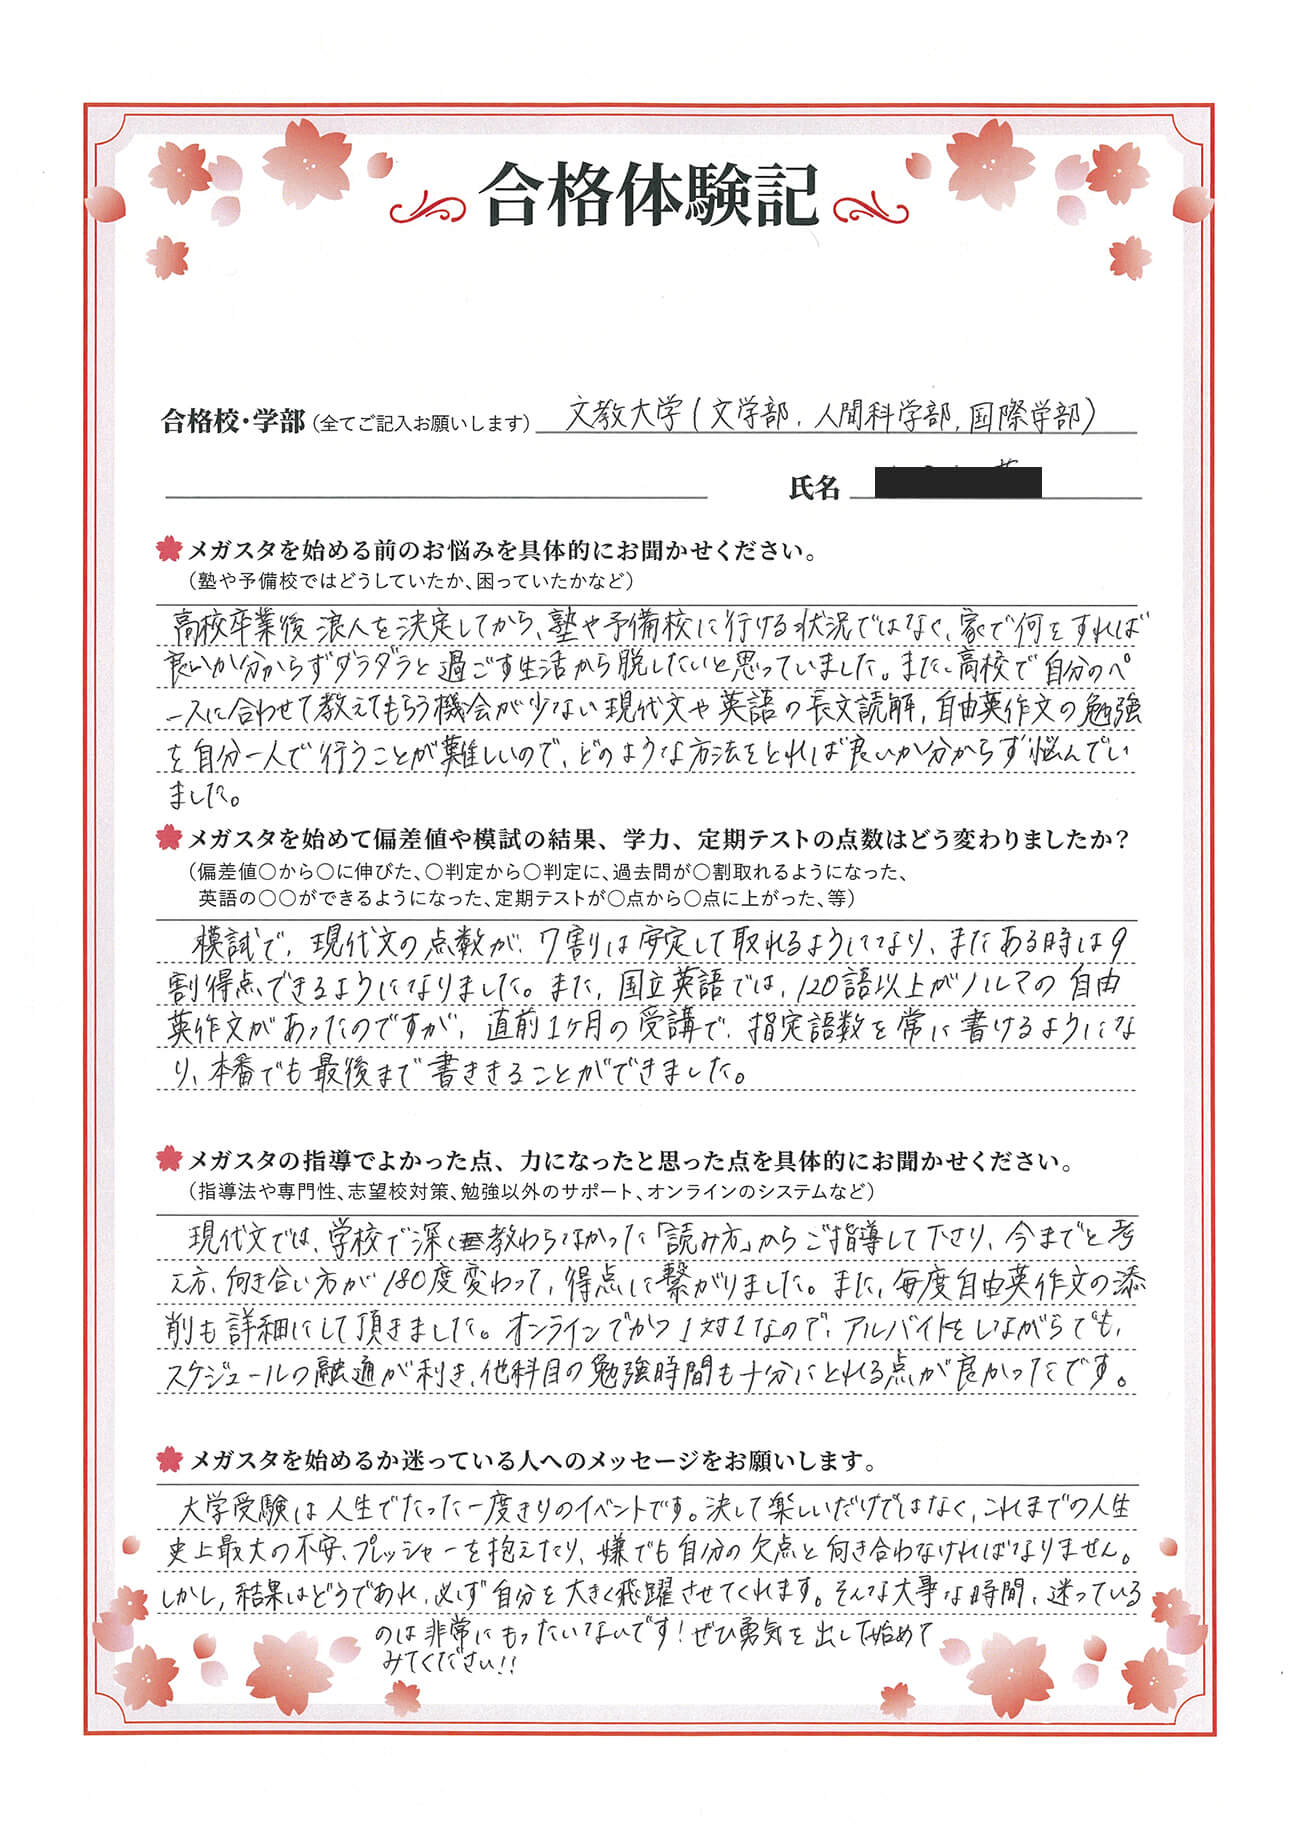 合格体験記
合格校・学部(全てご記入お願いします) 文教大学(文学部, 人間科学部, 国際学部)
氏名
メガスタを始める前のお悩みを具体的にお聞かせください。
(塾や予備校ではどうしていたか、困っていたかなど)
高校卒業後 浪人を決定してから、塾や予備校に行ける状況ではなく、家で何をすれば
良いか分からずダラダラと過ごす生活から脱したいと思っていました。また、高校で自分のペ
ースに合わせて教えてもらう機会が少ない現代文や英語の長文読解, 自由英作文の勉強
を自分一人で行うことが難しいので、どのような方法をとれば良いか分からず悩んでい
ました。
メガスタを始めて偏差値や模試の結果、学力、定期テストの点数はどう変わりましたか？
(偏差値○から○に伸びた、○判定から○判定に、過去問が○割取れるようになった、
英語の○○ができるようになった、定期テストが○点から○点に上がった、等)
模試で, 現代文の点数が, 7割りは安定して取れるようになり、またある時は9
割得点できるようになりました。また, 国立英語では, 120語以上がノルマの自由
英作文があったのですが, 直前1ヶ月の受講で, 指定語数を常に書けるようにな
り、本番でも最後まで書ききることができました。
メガスタの指導でよかった点、力になったと思った点を具体的にお聞かせください。
(指導法や専門性、志望校対策、勉強以外のサポート、オンラインのシステムなど)
現代文では、学校で深く教わらなかった「読み方」からご指導して下さり、今までと考
え方、向き合い方が180度変わって, 得点に繋がりました。また, 毎度自由英作文の添
削も詳細にして頂きました。オンラインでかつ1対1なので, アルバイトをしながらでも,
スケジュールの融通が利き、他科目の勉強時間も十分にとれる点が良かったです。
メガスタを始めるか迷っている人へのメッセージをお願いします。
大学受験は人生でたった一度きりのイベントです。決して楽しいだけではなく, これまでの人生
史上最大の不安、プレッシャーを抱えたり、嫌でも自分の欠点と向き合わなければなりません。
しかし, 結果はどうであれ、必ず自分を大きく飛躍させてくれます。そんな大事な時間、迷っている
のは非常にもったいないです！ぜひ勇気を出して始めて
みてください!!